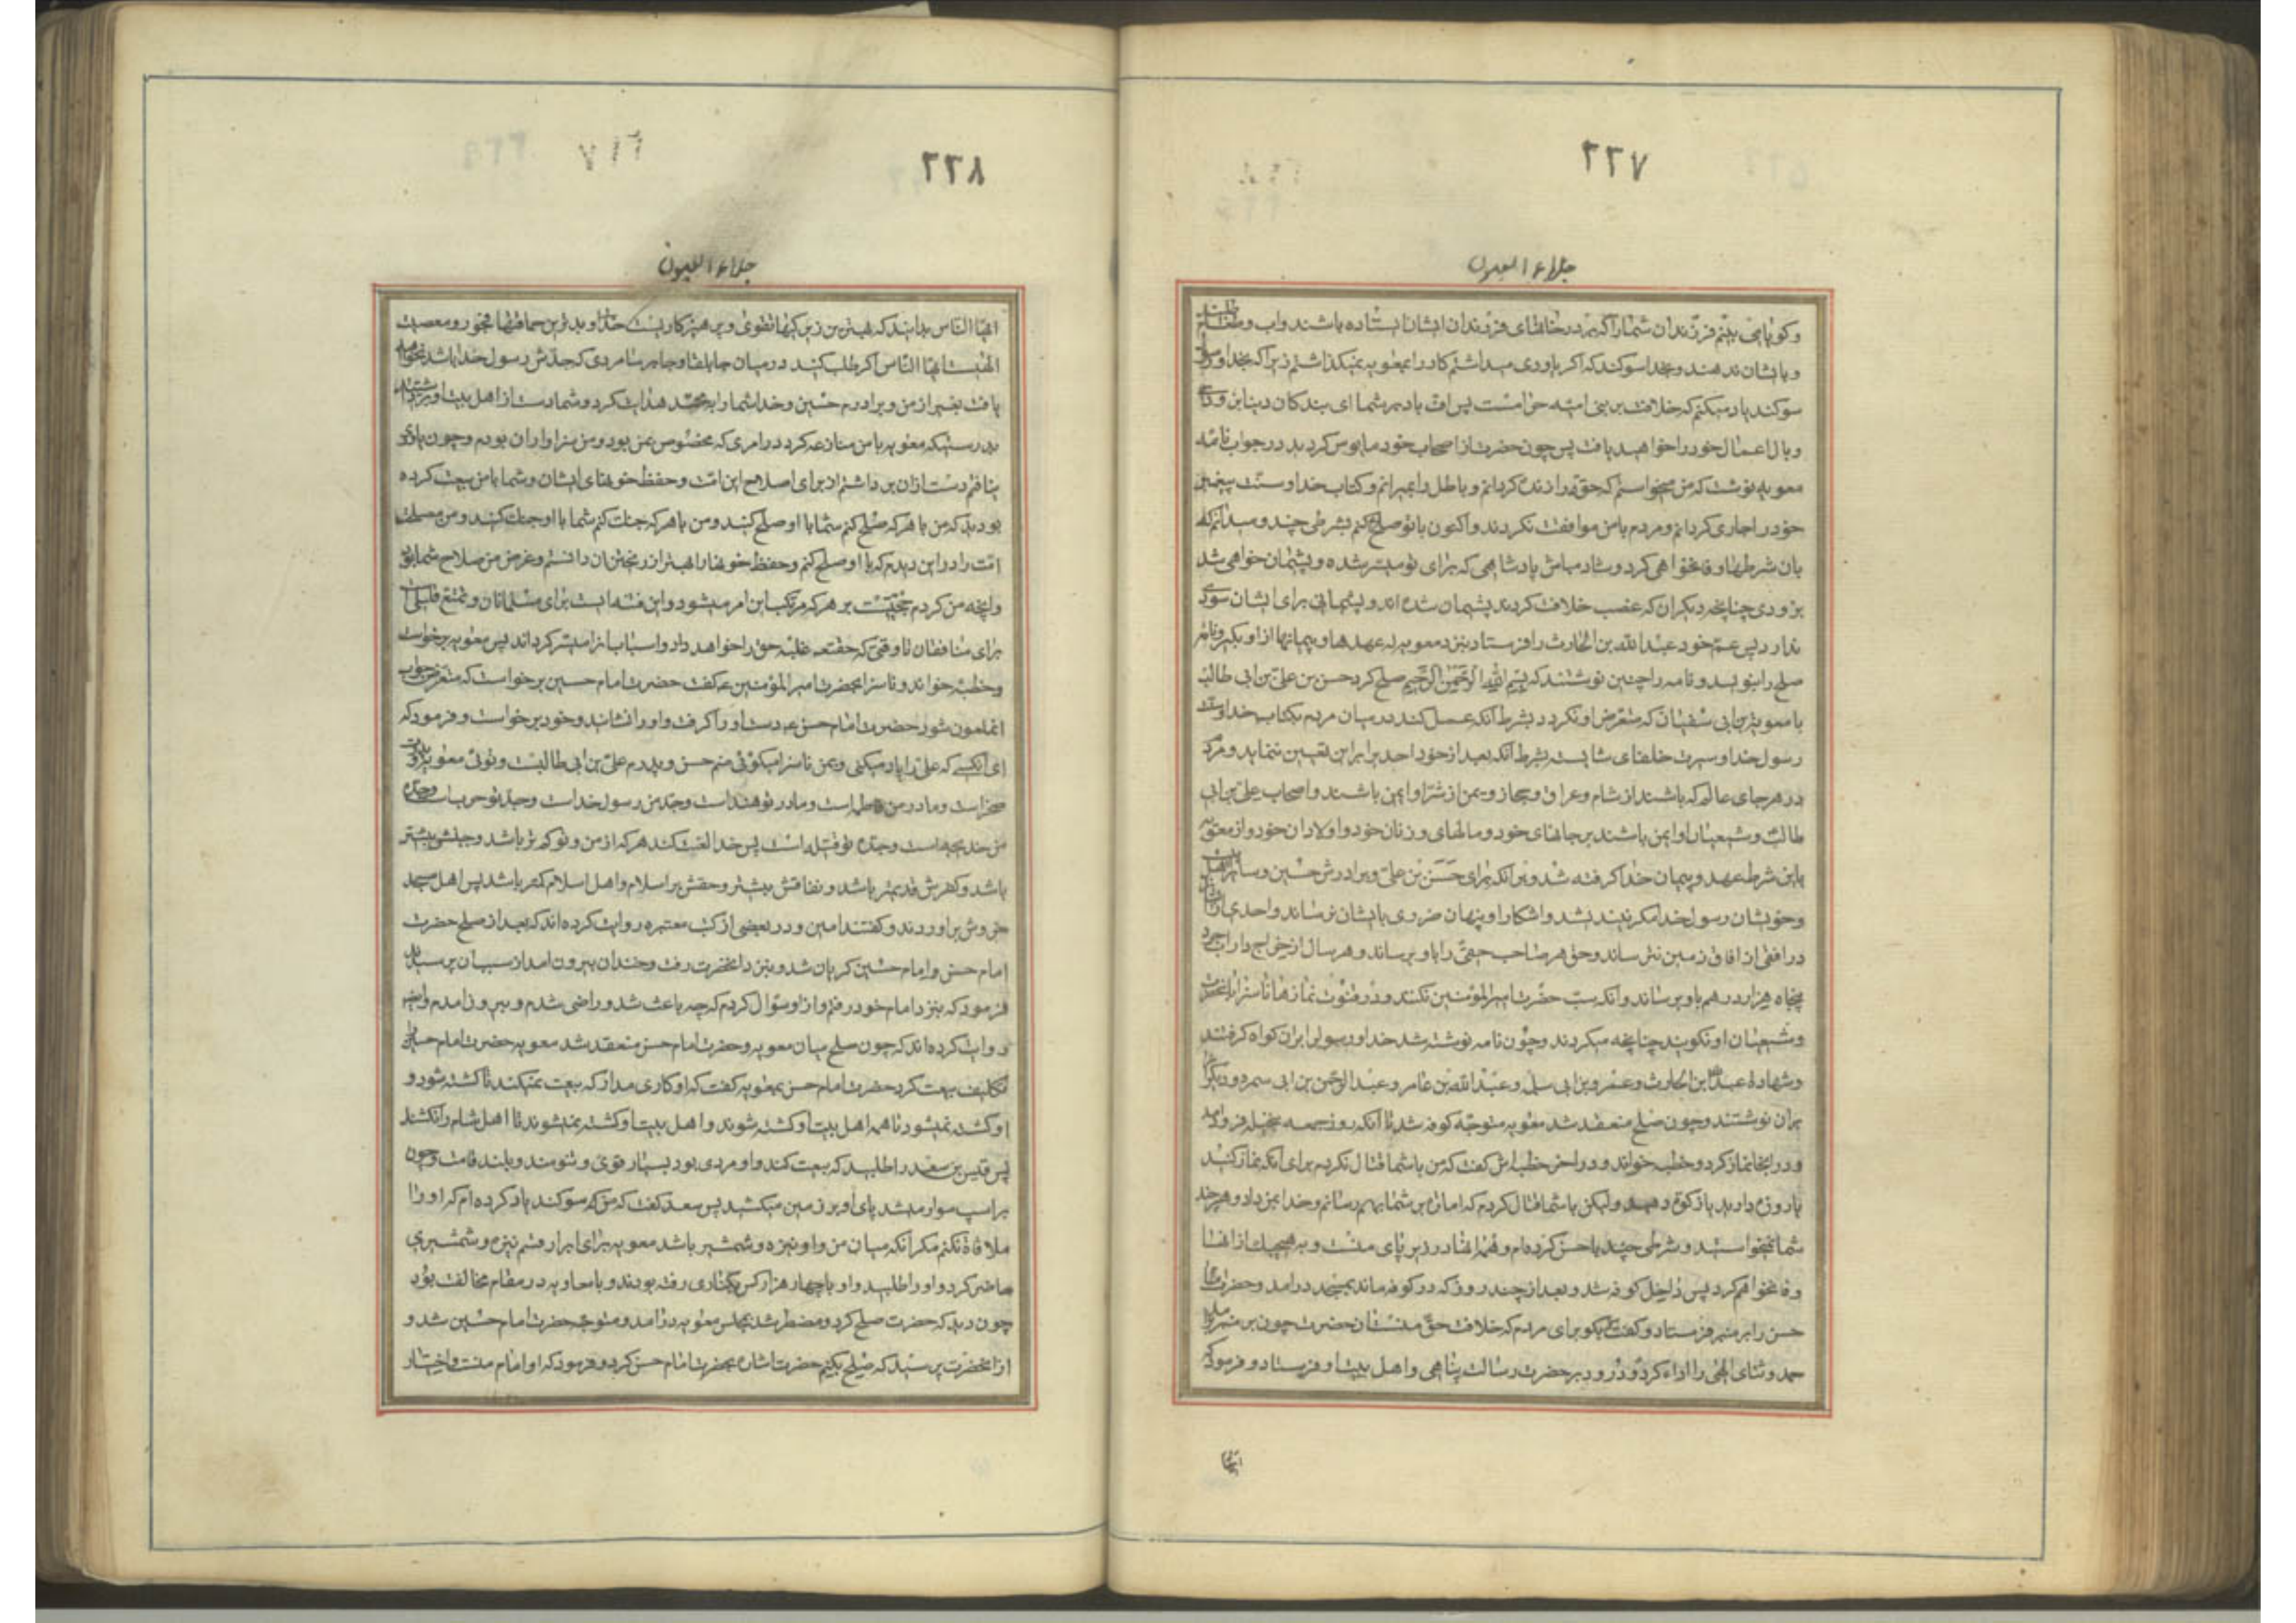 ٢٢٧
جلاء العیون
و کویا می بینم فرزندان شما را که بر در خانهای فرزندان ایشان ایستاده باشند و اب و طعام طلبند
و بایشان ندهند و بخدا سوکند که اکر یاوری میداشتم کار را بمعویه نمیکذاشتم زیرا که بخدا و رسول
سوکند یاد میکنم که خلافت بر بنی امیه حرامست پس اف باد بر شما ای بندکان دنیا بزودی
وبال اعمال خود را خواهید یافت پس چون حضرت از اصحاب خود مایوس کردید در جواب نامه
معویه نوشت که من میخواستم که حق را زنده کردانم و باطل را بمیرانم و کتاب خدا و سنت پیغمبر
خود را جاری کردانم و مردم با من موافقت نکردند و اکنون با تو صلح میکنم بشرطی چند و میدانم که
بان شرطها وفا نخواهی کرد و شاد مباش پادشاهی که برای تو میسر شده و پشیمان خواهی شد
بزودی چنانچه دیکران که غصب خلافت کردند پشیمان شده اند و پشیمانی برای ایشان سودی
ندارد پس عم خود عبد الله بن الحارث را فرستاد بنزد معویه که عهدها و پیمانها از او بکیرد و نامه
صلح را بنویسد و نامه را چنین نوشتند که بسم الله الرحمن الرحیم صلح کرد حسن بن علی بن ابی طالب
با معویة بن ابی سفیان که متعرض او نکردد بشرط آنکه عمل کند در میان مردم بکتاب خدا و سنت
رسول خدا و سیرت خلفای شایسته بشرط آنکه بعد از خود احدیرا برای این تعیین ننماید و مردم
در هر جای عالم که باشند از شام و عراق و حجاز و یمن از شر او ایمن باشند و اصحاب علی بن ابی
طالب و شیعیان او ایمن باشند بر جانهای خود و مالهای و زنان خود و اولادان خود و از معویه
باین شرط عهد و پیمان خدا کرفته شد و بر انکه برای حسن بن علی و برادرش حسین و سایر اهل بیت
و خویشان رسول خدا مکر نیندیشد و اشکار او پنهان ضرری بایشان نرساند و احدی از ایشان
در افقی از افاق زمین نترساند و حق هر صاحب حقی را باو برساند و هر سال از خراج دار ابجرد
پنجاه هزار درهم باو برساند و آنکه سب حضرت امیر المؤمنین نکنند و در قنوت نمازها ناسزا بانحضرت
و شیعیان او نکویند چنانچه میکردند و چون نامه نوشته شد خدا و رسول را بران کواه کرفتند
و شهادة عبد الله ابن الحارث و عمرو بن ابی سلمه و عبد الله بن عامر و عبد الرحمن بن ابی سمره و دیکرانرا
بران نوشتند و چون صلح منعقد شد معویه متوجه کوفه شد تا آنکه روز جمعه بنخیله فرود امد
و در انجا نماز کرد و خطبه خواند و در اخر خطبه اش کفت که من با شما قتال نکردم برای انکه نماز کنید
یا روزه دارید یا زکوة دهید ولیکن با شما قتال کردم که امارت بر شما بهم رسانم و خدا بمن داد و هر چند
شما نمیخواستید و شرطی چند با حسن کرده ام و همه انها در زیر پای منست و بهیچیک از انها
وفا نخواهم کرد پس داخل کوفه شد و بعد از چند روز که در کوفه ماند بمسجد درامد و حضرت امام
حسن را بر منبر فرستاد و کفت بکو برای مردم که خلافت حق منست ان حضرت چون بر منبر برامد
حمد و ثنای الهی را اداء کرد و درود بر حضرت رسالت پناهی و اهل بیت او فرستاد و فرمود که
ایها
٢٢٨
جلاء العیون
ایها الناس بدانید که بهترین زیرکیها تقوی و پرهیزکاریست خدا و بدترین حماقتها فجور و معصیت
الهیست ایها الناس اکر طلب کنید در میان جابلقا و جابرسا مردی که جدش رسول خدا باشد نخواهید
یافت بغیر از من و برادرم حسین و خدا شما را بمحمد هدایت کرد و شما دست از اهل بیت او برداشتید
بدرستیکه معویه با من منازعه کرد در امری که مخصوص من بود و من سزاوار ان بودم و چون یاوری
نیافتم دست از ان برداشتم از برای اصلاح این امت و حفظ خونهای ایشان و شما با من بیعت کرده
بودید که من با هر که صلح کنم شما با او صلح کنید و من با هر که جنک کنم شما با او جنک کنید و من مصلحت
امت را در این دیدم که با او صلح کنم و حفظ خونها را بهتر از ریختن ان دانستم و غرض من صلاح شما بود
و انچه من کردم حجتیست بر هر که مرتکب این امر میشود و این فتنه ایست برای مسلمانان و تمتع قلیلی است
برای منافقان تا وقتی که حقتعالی غلبه حق را خواهد داد و اسباب انرا میسر کرداند پس معویه برخواست
و خطبه خواند و ناسزا بحضرت امیر المؤمنین ع کفت حضرت امام حسین برخواست که متعرض جواب
انملعون شود حضرت امام حسن ع دست او را کرفت و او را نشاند و خود برخواست و فرمود که
ای انکسی که علی را یاد میکنی و بمن ناسزا میکوئی منم حسن و پدرم علی بن ابی طالبست و توئی معویه و پدرت
صخر است و مادر من فاطمه است و مادر تو هند است و جد من رسول خداست و جد تو حرب است و جده
من خدیجه است و جده تو فتیله است پس خدا لعنت کند هر که از من و تو کمتر باشد و حسبش پست تر
باشد و کفرش قدیمتر باشد و نفاقش بیشتر و حقش بر اسلام و اهل اسلام کمتر باشد پس اهل مسجد
خروش براوردند و کفتند امین و در بعضی از کتب معتبره روایت کرده اند که بعد از صلح حضرت
امام حسن و امام حسین کریان شد و بنزد انحضرت رفت و خندان بیرون امد از سبب ان پرسیدند
فرمود که بنزد امام خود رفتم و از او سؤال کردم که چه باعث شد و راضی شدم و بیرون امدم و ایضا
روایت کرده اند که چون صلح میان معویه و حضرت امام حسن منعقد شد معویه حضرت امام حسین را
تکلیف بیعت کرد حضرت امام حسن بمعویه کفت که او کاری مدار که بیعت نمیکند تا کشته شود و
او کشته نمیشود تا همه اهل بیت او کشته شوند و اهل بیت او کشته نمیشوند تا اهل شام را نکشند
پس قیس بن سعد را طلبید که بیعت کند و او مردی بود بسیار قوی و تنومند و بلند قامت و چون
بر اسپ سوار میشد پای او بر زمین میکشید پس سعد کفت که من سوکند یاد کرده ام که او را
ملاقاة نکنم مکر آنکه میان من و او نیزه و شمشیر باشد معویه برای ابرار قسم نیزه و شمشیری
حاضر کرد و او را طلبید و او با چهار هزار کس بکناری رفته بودند و با معاویه در مقام مخالفت بود
چون دید که حضرت صلح کرد و مضطر شد بمجلس معویه درامد و متوجه حضرت امام حسین شد و
از انحضرت پرسید که صلح بکنم حضرت اشاره بحضرت امام حسن کرد و فرمود که او امام منست و اختیار